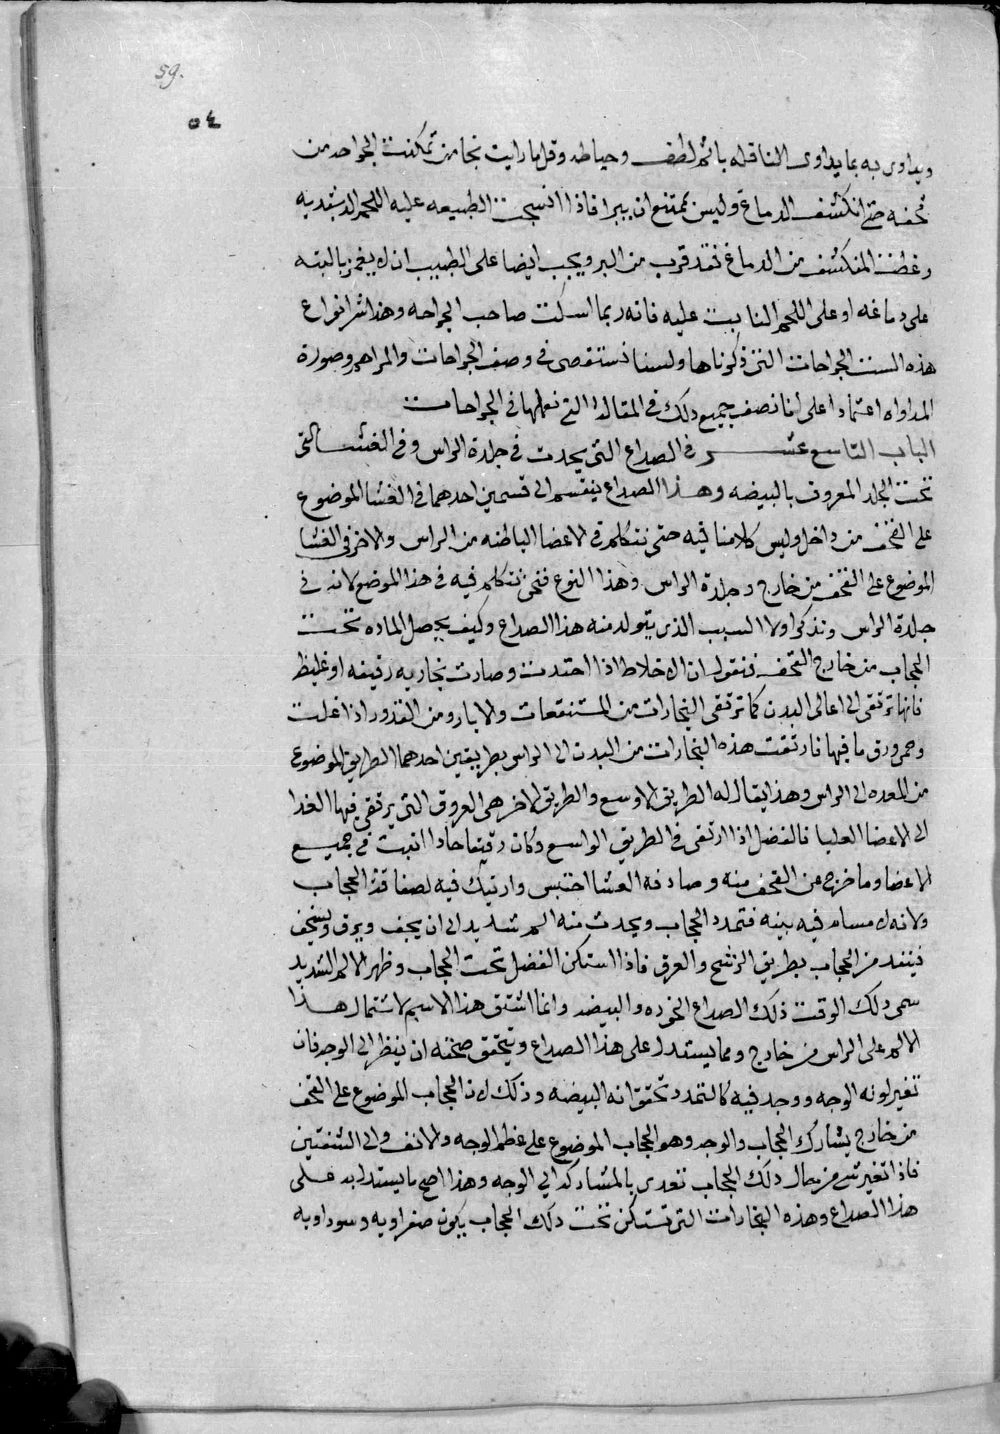 59.
٥٤
ويداوى به بما يداوى الناقله باثم لطف وحياطه وقل ما رايت نجا من تمكنت الجراحه من
قحفه حتى انكشف الدماغ وليس بممتنع ان يبرا فاذا انسجت الطبيعه عليه اللحم
وغطت المنكشف من الدماغ فقد قرب من البر ويجب ايضا على الطبيب ان لا يغمز بالبته
على دماغه او على اللحم النابت عليه فانه ربما اسكت صاحب الجراحه وهذا شر انواع
هذه الست الجراحات التى ذكرناها ولسنا نستقصى فى وصف الجراحات والمراهم وصورة
المداواه اعتمادا على انا نصف جميع ذلك فى المقاله التى نعملها فى الجراحات
الباب التاسع عشر فى الصداع التى يحدث فى جلدة الراس وفى الغشا التى
تحت الجلد المعروف بالبيضه وهذا الصداع ينقسم الى قسمين احدهما فى الغشا الموضوع
على القحف من داخل وليس كلامنا فيه حتى نتكلم فى الاعضا الباطنه من الراس والاخر فى الغشا
الموضوع على القحف من خارج وجلدة الراس وهذا النوع فنحن نتكلم فيه فى هذا الموضع لانه فى
جلدة الراس ونذكر اولا السبب الذى يتولد منه هذا الصداع وكيف يحصل الماده تحت
الحجاب من خارج القحف فنقول ان الاخلاط اذا احتدت وصارت بخاريه رقيقه او غليظ
فانها ترتقى الى اعالى البدن كما ترتقى البخارات من المستنقعات والابار ومن القدور اذا غلت
وحمى ورق ما فيها فارتقت هذه البخارات من البدن الى الراس بطريقين احدهما الطريق الموضوع
من المعده الى الراس وهذا يقال له الطريق الاوسع والطريق الاخر هى العروق التى يرتقى فيها الغدا
الى الاعضا العليا فالفضل اذا ارتقى فى الطريق الواسع وكان رقيقا حادا انبث فى جميع
الاعضا وما خرج عن القحف منه وصادفه الغشا احتبس وارتبك فيه لصفاقة الحجاب
ولانه لا مسام فيه بينه فتمدد الحجاب ويحدث منه الم شديد الى ان يجف ويرق ويسخف
فينفد من الحجاب بطريق الرشح والعرق فاذا استكن الفضل تحت الحجاب وظهر الالم الشديد
سمى ذلك الوقت ذلك الصداع الخوده والبيضه وانما اشتق هذا الاسم لاشتمال هذا
الالم على الراس من خارج ومما يستدل على هذا الصداع ويتحقق صحته ان ينظر الى الوجه فان
تغير لونه الوجه ووجد فيه كالتمدد تحقق انه البيضه وذلك لان الحجاب الموضوع على القحف
من خارج يشارك الحجاب والوجه وهو الحجاب الموضوع على عظم الوجه والانف والى الشفتين
فاذا تغير شى من حال ذلك الحجاب تعدى بالمشاركه الى الوجه وهذا اصح ما يستدل به على
هذا الصداع وهذه البخارات التى تستكن تحت ذلك الحجاب يكون صفراويه وسوداويه